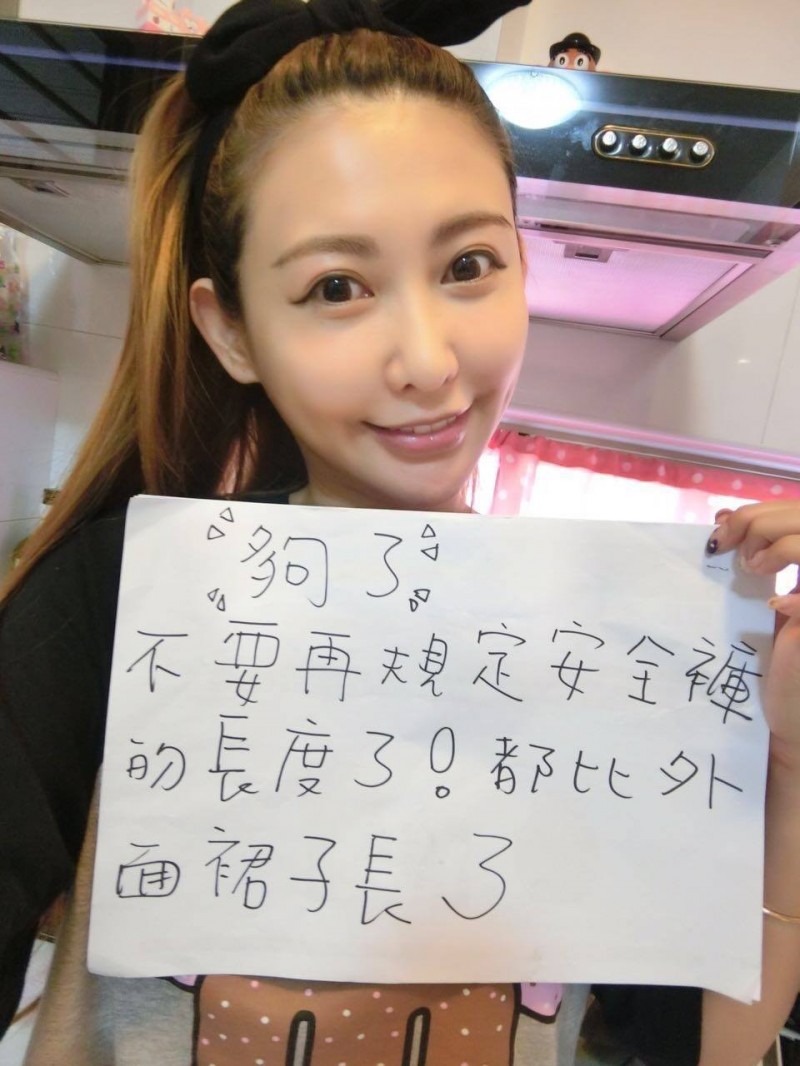 夠了
不要再規定安全褲
的長度了!都比外
面裙子長了